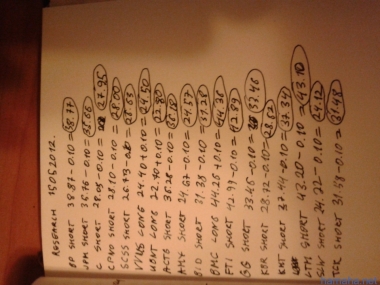 RESEARCH 15052012.
BP SHORT 38.87-0.10=38.77
JPM SHORT 35.76-0.10=35.66
C SHORT 28.05-0.10=27.95
LPNO SHORT 28.10-0.10=28.00
SCSS SHORT
VVUS LONG 24.40+0.10=24.50
WANT LONG 22.70+0.10=22.80
ACTG SHORT 36.28-0.10=36.18
AMX SHORT 24.67-0.10=24.57
BID SHORT 31.38-0.10=31.28
BMC LONG 44.26+0.10=44.36
FTI SHORT 42.99-0.10=42.89
GG SHORT
KBR SHORT 28.72-0.10=28.62
KMT SHORT 37.44-0.10=37.34
SHORT 43.20-0.10=43.10
SLW SHORT 24.22-0.10=24.12
TCK SHORT 31.58-0.10=31.48